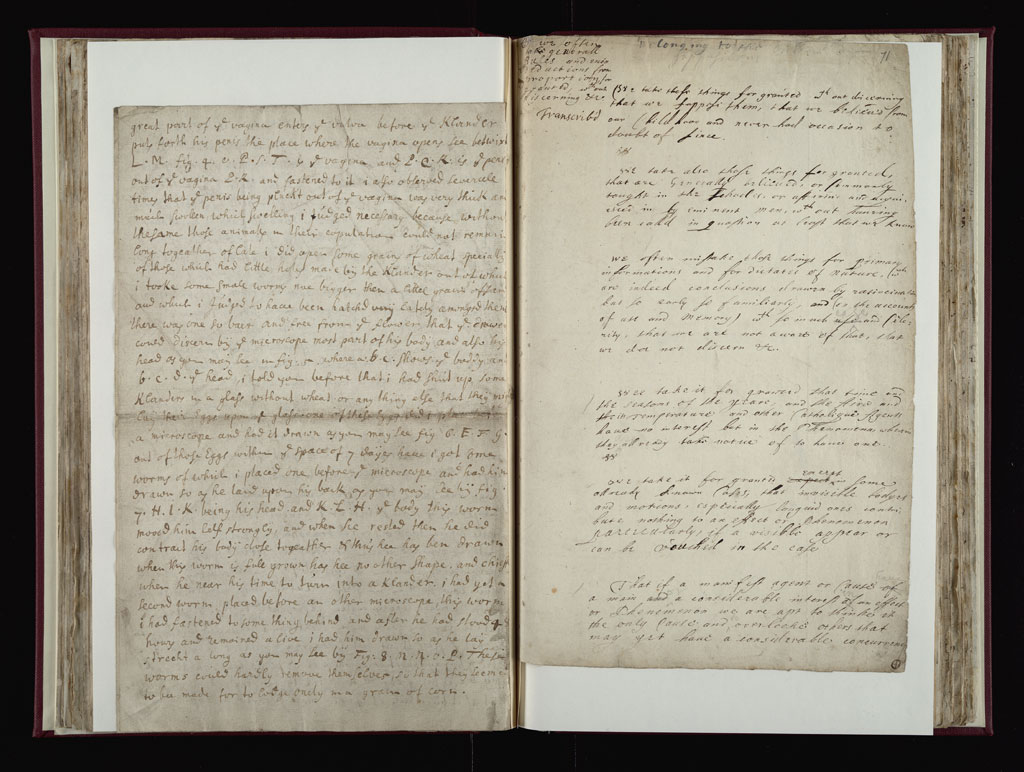 great part of yᵉ vagina enters yᵉ vulva before yᵉ Klander
puts forth his penis the place where the vagina opens see betwixt
L. M. fig. 4. P. S. T. is yᵉ vagina and P. Q. K. is yᵉ penis
out of yᵉ vagina P. K. and fastened to it i also observed severele
times that yᵉ penis being pluckt out of yᵉ vagina was very thick and
much swolen which swelling i judged necessary because without
the same those animals in their copulation could not remain
long togeather of late i did open some grains of wheat specialy
of those which had little holes made by the Klander out of which
i tooke some small worms nue bigger then a litel grain of sand
and which i judged to have been hatched very lately amongst them
there was one so cleer and free from yᵉ flower that yᵉ
could discern by yᵉ microscope most part of his body and also his
head as you may see in fig. where a. b. c. shows yᵉ boddy and
b. c. d. yᵉ head, i told you before that i had shut up some
Klanders in a glass without wheat or any thing else that they might
lay their Eggs upon yᵉ glass one of these Eggs i did place before
a microscope and had it drawn as you may see fig. 6. E. F. G.
out of those Eggs within yᵉ space of 7 dayes have i got some
worms of which i placed one before yᵉ microscope and had him
drawn so as he laid upon his back as you may see by fig.
7. H. I. K being his head and K L H. yᵉ body this worm
moved him self strongly, and when she rested then he did
contract his body close togeather & thus hee has ben drawn
when this worm is full grown has hee no other shape, and chiefly
when he near his time to turn into a Klander. i had yet a
second worm placed before an other microscope, this worm
i had fastened to some thing behind and after he had stood 48
hours and remained alive i had him drawn so as he lay
strecht a long as you may see by Fig: 8. N. N. O. P. These
worms could hardly remove themselves, so that they seemed
to be made for to lodge onely in a grain of corn.
belonging to
71
we often
take generall
Rules and
deductions from
proportions for
granted, wᵗʰ out
discerning &c
Transcrib'd
We take those things for granted wᵗʰ out discerning
that we suppose them, that we believed from
our Childhood and never had occasion to
doubt of since.
We take also those things for granted,
that are generally believed, or commonly
taught in the Schools, or affirm'd and
in by eminent men, wᵗʰ out having
been call'd in question at least that we know
we often mistake those things for primary
informations and for dictates of nature, wᶜʰ
are indeed conclusions drawn by ratiocination
but so early so familiarly, and (on the account
of use and memory) wᵗʰ so much ease and Cele-
rity, that we are not aware of that, that
we doe not discern &c.
Wee take it for granted that time and
the seasons of the yeare, and the Wind and
their temperature and other Catholique Agents
have no interest but in the Phenomena wherein
they already take notice of to have one.
wee take it for granted except some
already known Cases, that invisible bodyes
and motions, especially languid ones contri-
bute nothing to an effect or Phenomenon
particularly if a visible appear or
can be vouched in the case
That if a manifest agent or cause of
a main and a considerable interest of an effect
or Phenomenon we are apt to think it
the only Cause, and overlooke others that
may yet have a considerable concurrence